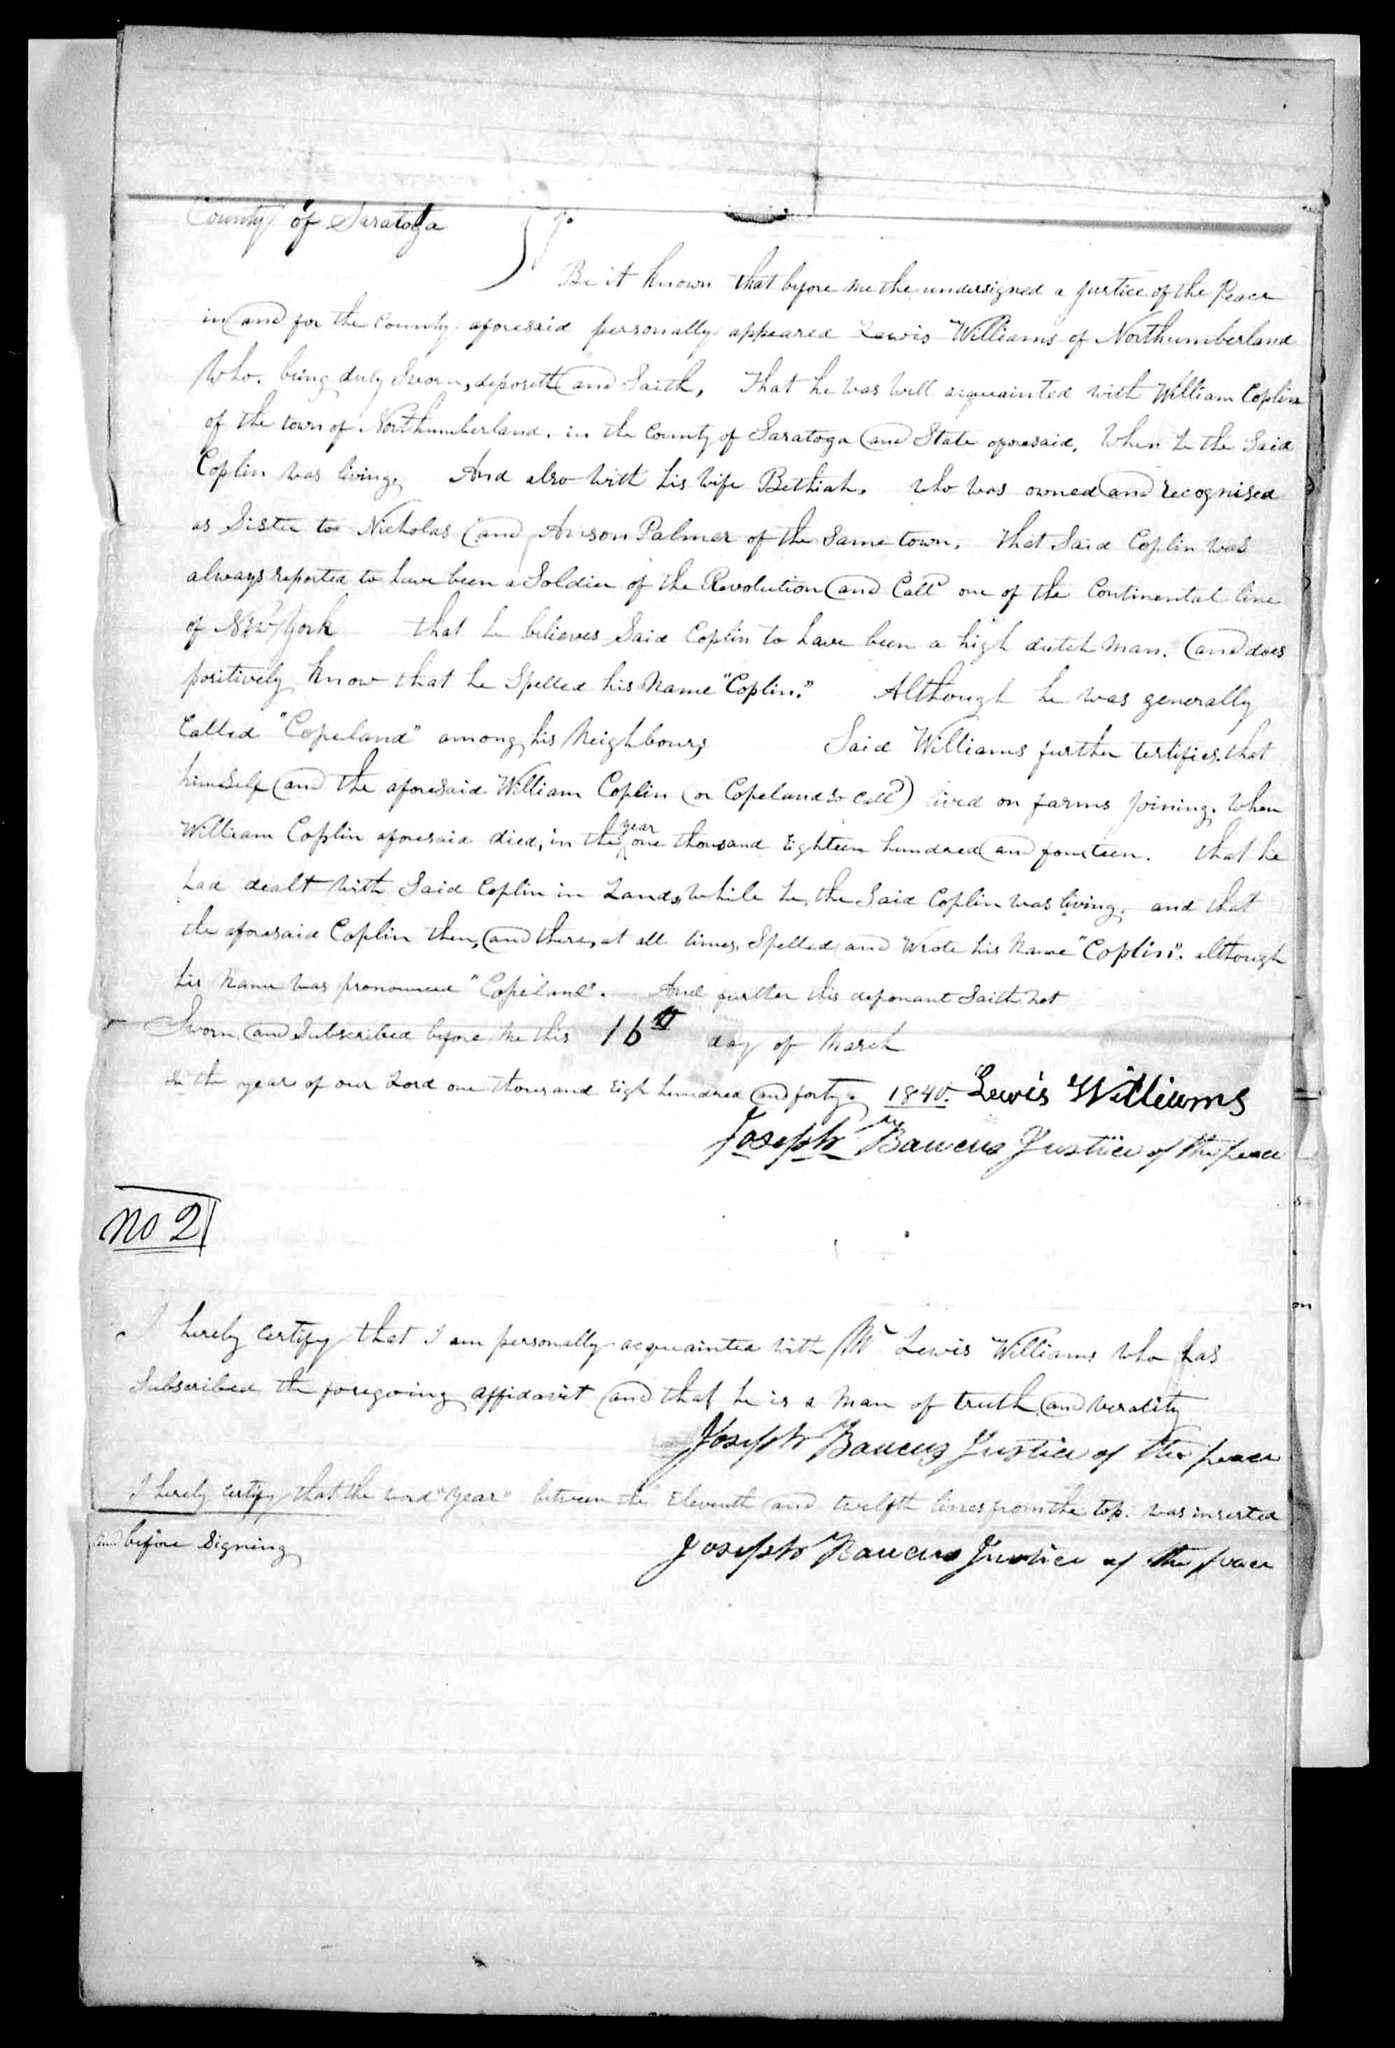 County of Saratoga } ss
Be it known that before me the undersigned a justice of the Peace
in and for the county aforesaid personally appeared Lewis Williams of Northumberland
Who. being duly Sworn, deposeth and Saith, That he was well acquainted with William Coplin
of the town of Northumberland. in the county of Saratoga and State aforesaid, When he the Said
Coplin was living, And also with his wife Bethiah. who was owned and recognised
as Sister to Nicholas and Anson Palmer of the Same town. that Said Coplin was
always reported to have been a Soldier of the Revolution and Calld one of the Continental line
of New York that he believes Said Coplin to have been a high dutch man. and does
positively know that he Spelled his Name "Coplin." Although he was generally
Called "Copeland" among his Neighbours Said Williams further testifies that
himself and the aforesaid William Coplin (or Copeland so calld) lived on farms joining, When
William Coplin aforesaid died, in the year one thousand Eighteen hundred and fourteen. that he
had dealt with Said Coplin in Lands, while he, the Said Coplin was living, and that
the aforesaid Coplin then, and there, at all times, Spelled and Wrote his Name "Coplin". although
his Name was pronounced "Copeland". And further this deponant Saith not
Sworn, and Subscribed before me this 16th day of March
in the year of our Lord one thousand Eigh hundred and forty. 1840. Lewis Williams
Joseph Baucus Justice of the peace
No 2
I hereby certify that I am personally acquainted with Mr Lewis Williams who has
Subscribed the foregoing affidavit and that he is a man of truth and veracity
Joseph Baucus Justice of the peace
I hereby certify that the word "year" between the Eleventh and twelfth lines from the top. was inserted
before Signing
Joseph Baucus Justice of the peace